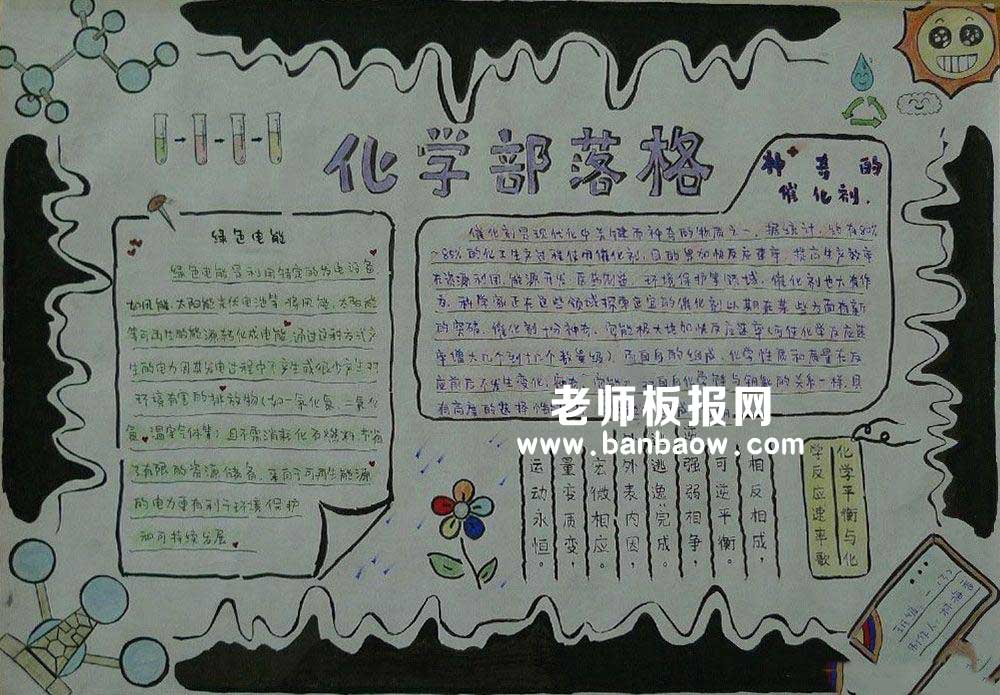 化学部落格
绿色电能
绿色电能是利用特定的发电设备
如风能、太阳能光伏电池等,将风能、太阳能
等可再生的能源转化成电能,通过这种方式产
生的电力因其发电过程中不产生或很少产生对
环境有害的排放物(如一氧化氮、二氧化
氮,温室气体等)且不需消耗化石燃料,节省
了有限的资源储备,来自于可再生能源
的电力更有利于环境保护
和可持续发展
神奇的
催化剂.
催化剂是现代化中关键而神奇的物质之一,据统计,约有80%
~85%的化工生产过程使用催化剂,目的是加快反应速率,提高生产效率
在资源利用、能源开发、医药制造、环境保护等领域,催化剂也大有作
为,科学家正在这些领域探索适宜的催化剂以期在某些方面有新
的突破,催化剂十分神奇,它能极大地加快反应速率(可使化学反应速
率增大几个到十几个数量级),而自身的组成、化学性质和质量在反
应前后不发生变化,
的关系一样,具
有高度的选择性
老师板报网
www.banbaow.com
化学平衡与化
学反应速率歌
相反相成,
可逆平衡。
强弱相争,
逃逸完成。
外表内因,
宏微相应。
量变质变,
运动永恒。